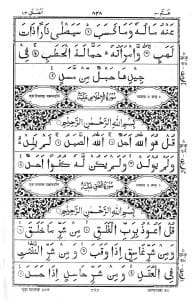 عَنْهُ مَالُهٗ وَمَا كَسَبَ ۞ سَيَصْلٰى نَارًا ذَاتَ
لَهَبٍ ۞ وَّامْرَاَتُهٗ حَمَّالَةَ الْحَطَبِ ۞ فِيْ
جِيْدِهَا حَبْلٌ مِّنْ مَّسَدٍ ۞
بِسْمِ اللهِ الرَّحْمٰنِ الرَّحِيْمِ
قُلْ هُوَ اللهُ اَحَدٌ ۞ اَللهُ الصَّمَدُ ۞ لَمْ يَلِدْ
وَلَمْ يُوْلَدْ ۞ وَلَمْ يَكُنْ لَّهٗ كُفُوًا اَحَدٌ ۞
بِسْمِ اللهِ الرَّحْمٰنِ الرَّحِيْمِ
قُلْ اَعُوْذُ بِرَبِّ الْفَلَقِ ۞ مِنْ شَرِّ مَا خَلَقَ ۞
وَمِنْ شَرِّ غَاسِقٍ اِذَا وَقَبَ ۞ وَمِنْ شَرِّ النَّفّٰثٰتِ
فِي الْعُقَدِ ۞ وَمِنْ شَرِّ حَاسِدٍ اِذَا حَسَدَ ۞